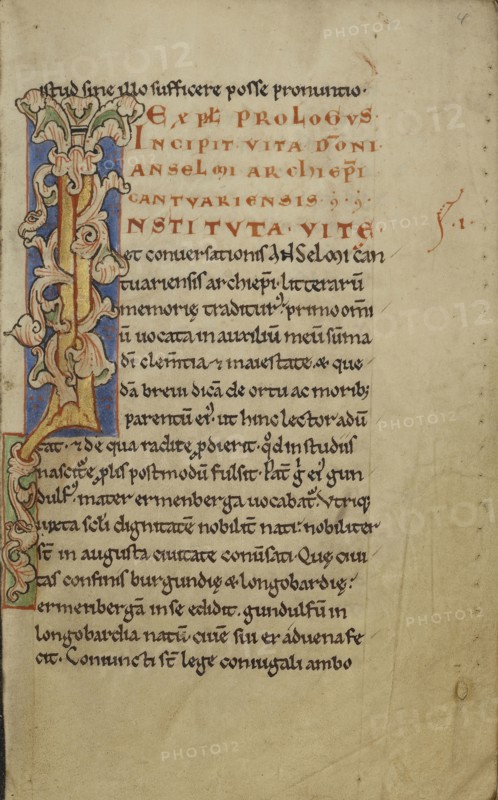 4
istud sine illo sufficere posse pronuntio·
Expƚ PROLOGVS·
INCIPIT VITA DŌNI
ANSELMI ARCHIEP̄I
CANTVARIENSIS·
INSTITUTA VITE
·I·
et conversationis Anselmi can
tuariensis archiep̄i litterarū
memorię traditur᷒ primo om̄i
ū uocata in auxiliū meū sūma
dī clem̄tia & maiestate, & que
dā breui dicā de ortu ac morib;
parentū ei᷒, ut hinc lector aduer
tat· & de qua radice p̄dierit· qd̄ in studiis
nascitꝭ plis postmodū fulsit· Pat̄ g̊ ei᷒ gun
dulf᷒, mater ermenberga uocabat᷒· Vtriq;
iuxta sc̄li dignitatē nobilit̄ nati· nobiliter
st̄ in augusta ciuitate conūsati· Quę ciui
tas confinis burgundię & longobardię·
ermenbergā in se edidit· gundulfū in
longobardia natū· ciuē sui ex aduena fe
cit· Coniuncti st̄ lege coniugali ambo
PHOTO12